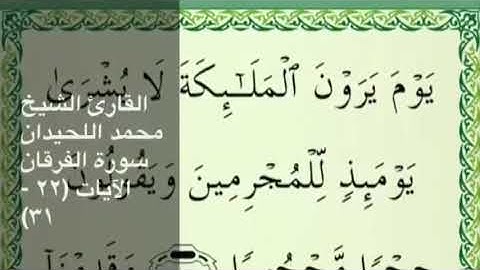 القارئ الشيخ
محمد اللحيدان
سورة الفرقان
الآيات (٢٢ -
٣١)
يَوْمَ يَرَوْنَ ٱلْمَلَـٰٓئِكَةَ لَا بُشْرَىٰ
يَوْمَئِذٍ لِّلْمُجْرِمِينَ وَيَقُولُونَ
حِجْرًا مَّحْجُورًا وَقَدِمْنَآ